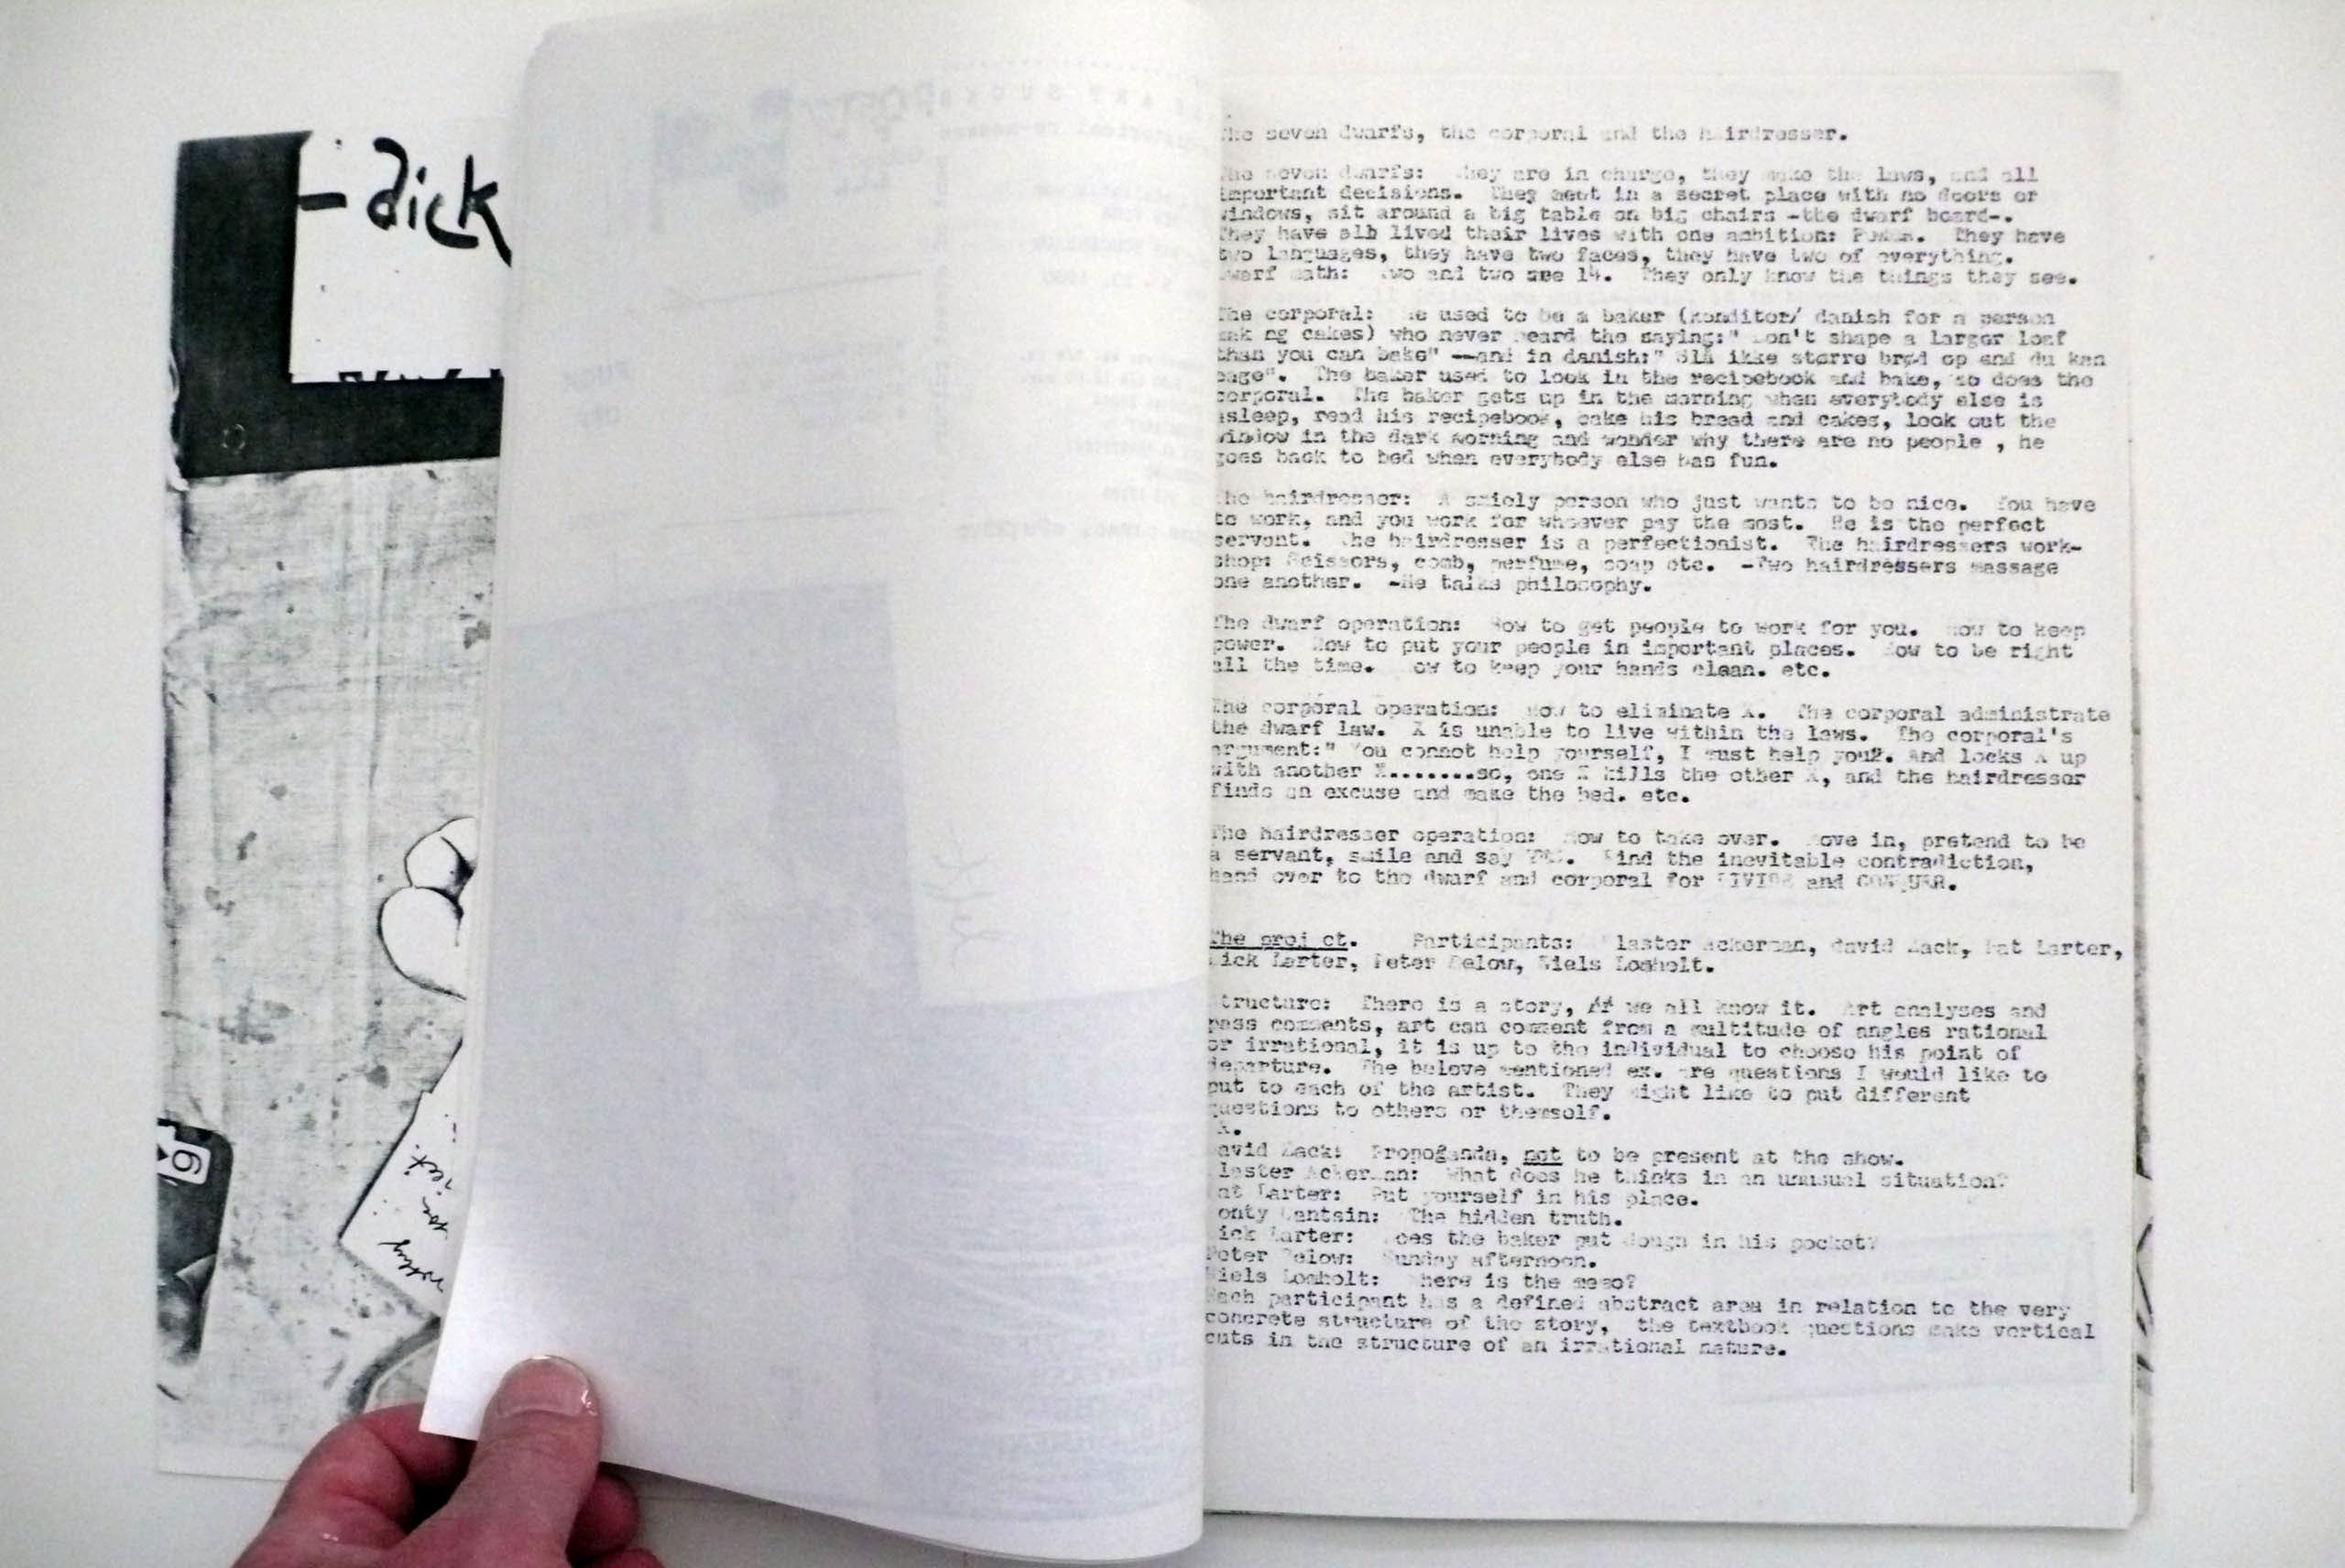 - dick
The seven dwarfs, the corporal and the hairdresser.
The seven dwarfs: They are in charge, they make the laws, and all
important decisions. They meet in a secret place with no doors or
windows, sit around a big table on big chairs -the dwarf board-.
They have alb lived their lives with one ambition: POWER. They have
two languages, they have two faces, they have two of everything.
Dwarf math: Two and two are 14. They only know the things they see.
The corporal: He used to be a baker (konditor/ danish for a person
making cakes) who never heard the saying:" Don't shape a larger loaf
than you can bake" --and in danish:" Slå ikke større brød op end du kan
bage". The baker used to look in the recipebook and bake, so does the
corporal. The baker gets up in the morning when everybody else is
asleep, read his recipebook, bake his bread and cakes, look out the
window in the dark morning and wonder why there are no people , he
goes back to bed when everybody else has fun.
The hairdresser: A smiely person who just wants to be nice. You have
to work, and you work for whoever pay the most. He is the perfect
servant. The hairdresser is a perfectionist. The hairdressers work-
shop: Scissors, comb, perfume, soap etc. -Two hairdressers massage
one another. -He talks philosophy.
The dwarf operation: How to get people to work for you. How to keep
power. How to put your people in important places. How to be right
all the time. How to keep your hands clean. etc.
The corporal operation: How to eliminate X. The corporal administrate
the dwarf law. X is unable to live within the laws. The corporal's
argument:" You connot help yourself, I must help you2. And locks X up
with another X........so, one X kills the other X, and the hairdresser
finds an excuse and make the bed. etc.
The hairdresser operation: How to take over. Move in, pretend to be
a servant, smile and say YES. Find the inevitable contradiction,
hand over to the dwarf and corporal for DIVIDE and CONQUER.
The project. Participants: Blaster Ackerman, david Zack, Pat Larter,
Dick Larter, Peter Below, Niels Lomholt.
Structure: There is a story, we all know it. Art analyses and
pass comments, art can comment from a multitude of angles rational
or irrational, it is up to the individual to choose his point of
departure. The belove mentioned ex. are questions I would like to
put to each of the artist. They might like to put different
questions to others or themself.
X.
David Zack: Propoganda, not to be present at the show.
Blaster Ackerman: What does he thinks in an unusual situation?
Pat Larter: Put yourself in his place.
Monty Cantsin: The hidden truth.
Dick Larter: Does the baker put dough in his pocket?
Peter Below: Sunday afternoon.
Niels Lomholt: Where is the
Each participant has a defined abstract area in relation to the very
concrete structure of the story, the textbook questions make vertical
cuts in the structure of an irrational nature.